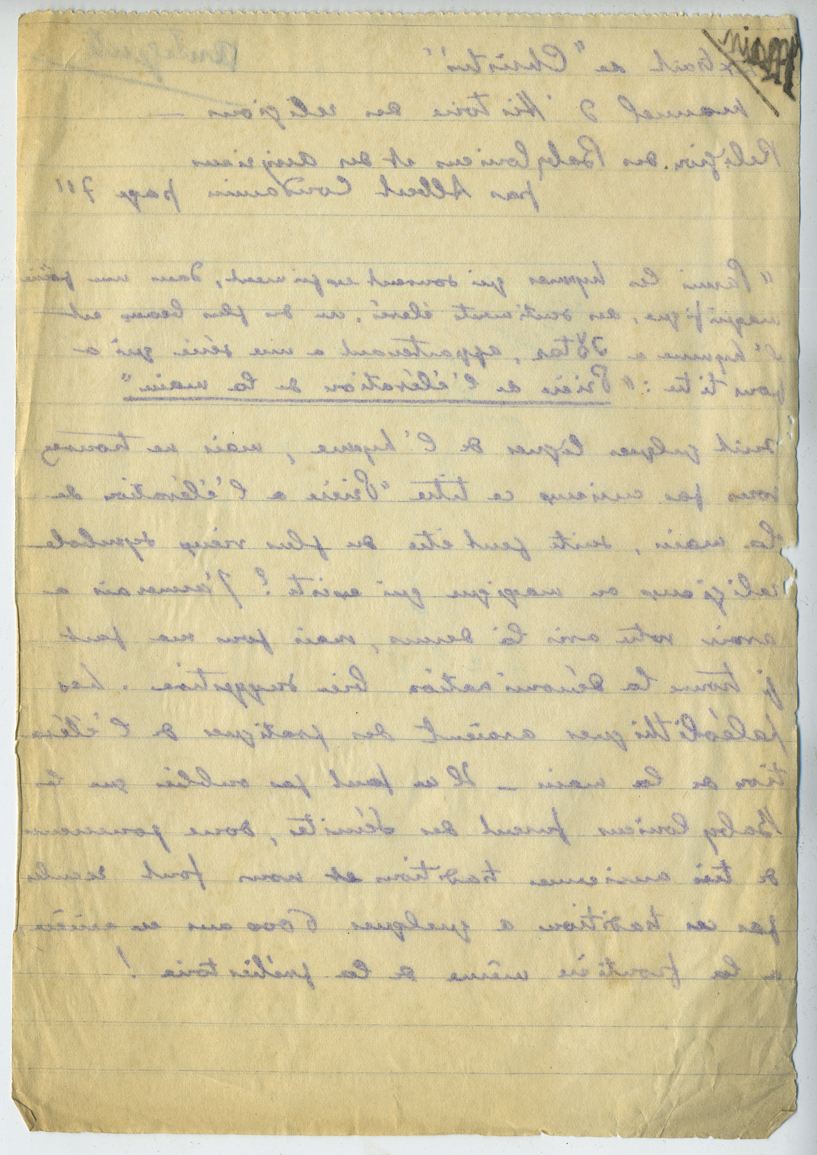 Main
Antiquité
Extrait de "Christus"
manuel d'Histoire des religions —
Religion des Babyloniens et des Assyriens
par Albert Condamin page 711
"Parmi les hymnes qui souvent expriment, dans une poésie
magnifique, des sentiments élevés, un des plus beaux est
l'hymne a Istar, appartenant a une série qui a
pour titre : "Prière de l'élévation de la main"
Suit quelques lignes de l'hymne, mais ne trouvez
vous pas curieux ce titre "Prière a l'élévation de
la main, suite peut être du plus vieux symbole
religieux ou magique qui existe ? J'aimerais a
avoir votre avis là dessus, mais pour ma part
je trouve la dénomination bien suggestive. Les
paléolithiques avaient des pratiques de l'éléva
tion de la main — Il ne faut pas oublier que les
Babyloniens furent des Sémites, donc
de très anciennes traditions et nous font reculer
par ces traditions a quelques 6000 ans en arrière,
a la frontière même de la préhistoire !